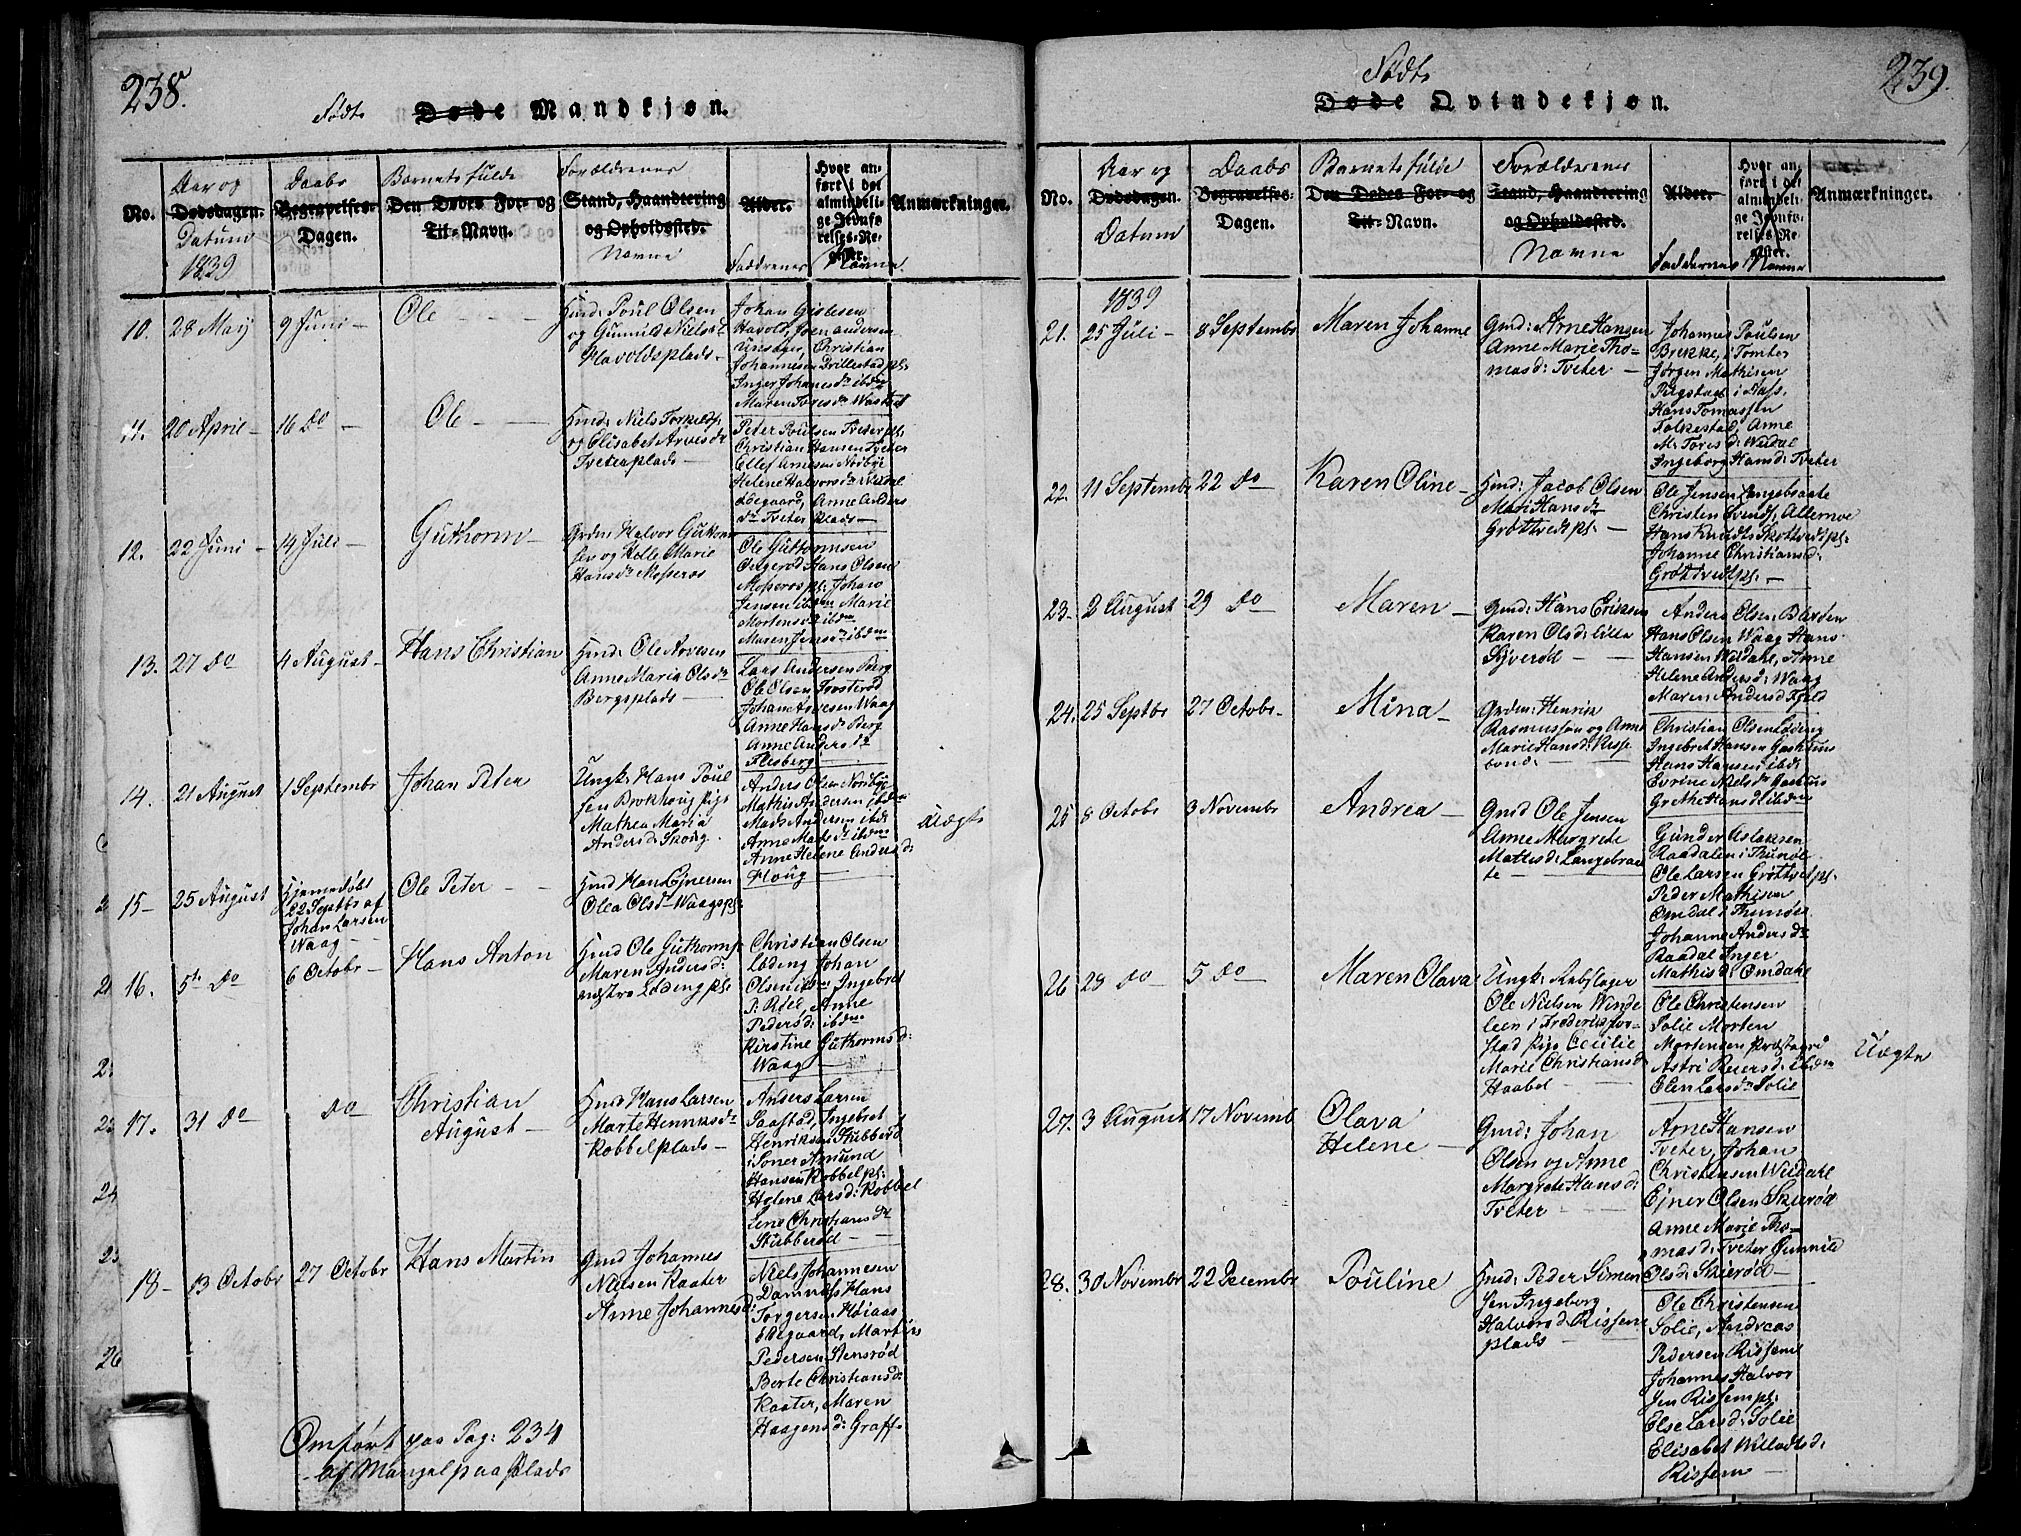 238.
Født Døde Mandkjøn.
No.
Aar og
Dødsdagen.
Datum
1839
Daabs
Begravelses-
Dagen.
Barnets fulde
Den Dødes For- og
Til-Navn.
Forældrenes
Stand, Haandtering
og Opholdssted.
Navne
Alder.
Faddrenes Navne
Hvor an-
ført i det
almindeli-
ge Jevnfø-
relses-Re-
gister.
Anmærkninger.
10. 28 Maij 9 Juni - Ole
Huusd: Poul Olsen
og Gunnild Nielsd
Havoldsplads -
Johan Gislesen
Havold, Joen Andersen
Unsager, Christian
Johannesen Drillestad pl:
Inger Johanesdr ibdm
Maren Toresdr
11. 20 April - 16 Do - Ole
Huusd: Niels Torkelds:
og Elisabet Arvesdr
Tveterplads -
Peter Poulsen Tveterpl:
Christian Hansen Tveter
Ellef Arnesen Norbye
Helene Halvorsdr Wildal
Ødegaard, Anne Anders
dr Tveter Plads -
12. 22 Juni - 14 Juli - Guthorm -
Grdm Halvor Guthorm
sen og Helle Marie
Hansdr Mosserøs
Ole Guthormsen
Hans Olsen
Mosserøs pl: Johan
Jensen ibdm Marie
Mortensdr ibdm
Maren Jensdr ibdm
13. 27 Do 4 August - Hans Christian
Huusd: Ole Arvesen
Anne Maria Olsdr
Bergsplads -
Lars Andersen Berg
Ole Olsen Torsterød
Johan Arvesen Waag
Anne Hansdr Berg
Anne Andersdr
Flesberg
14. 21 August 1 Septembr Johan Peter
Ungk: Hans Poul
sen Brokhoug Pige
Mathea Maria
Andersd: Skoug.
Anders Olsen Norbye
Mathis Andersen ibdm
Mads Andersen ibd:
Anne Madsdr ibdm
Anne Helene Andersd:
Houg
Uægte
15- 25 August
Hjemmedøbt
22 Septbr af
Johan Larsen
Waag -
Ole Peter -
Huusd Hans Ejnersen
Olea Olsdr Waagspl:
16. 5te Do 6 Octobr - Hans Anton
Huusd Ole Guthorms:
Maren Andersd:
Løding pl:
Christian Olsen
Løding Johan
Olsen ibdm Ingebret
Anne
Pedersd: ibdm
Kirstine Guthormsd:
Waag
17. 31 Do Do
Christian
August -
Huusd Hans Larsen
Marte Henriksdr
Kobbelplads -
Anders Larsen
Saastad, Ingebret
Henriksen Stubberød
i Soner Amund
Hansen Kobbel pl:
Helene Larsd: Kobbel
Lene Christiansdr
Stubberød -
18- 13 Octobr 27 Octobr Hans Martin
Gmd Johannes
Nielsen Raater
Anne Johannesd:
Niels Johannesen
Hans
Torgersen Høiaas
Ødegaard, Martin
Pedersen Stensrød
Berte Christiansd:
Raater, Maren
Haagensd: Graff.
Omført paa Pag: 234
af Mangel paa Plads
239.
Født
Døde Qvindekjøn.
No.
Aar og
Dødsdagen.
Datum
Daabs
Begravelses-
Dagen.
Barnets fulde
Den Dødes For- og
Til-Navn.
Forældrenes
Stand, Haandtering
og Opholdssted.
Navne
Alder.
Faddernes Navne
Hvor an-
ført i det
almindeli-
ge Jevnfø-
relses-Re-
gister.
Anmærkninger.
1839
21. 25 Juli - 8 Septembr Maren Johanne
Gmd: Arne Hansen
Anne Marie Tho-
masd: Tveter -
Johannes Poulsen
Brekke, i Tomter
Jørgen Mathisen
i Haf.
Hans Tomassen
Folkestad, Anne
M: Toresd: Wildal
Ingeborg Hansd: Tveter
22. 11 Septembr 22 Do Karen Oline -
Huusd: Jacob Olsen
Mari Hansdr
Grøttvedpl: -
Ole Jensen Langebraate
Christen Svends: Allernoe
Hans Knudts: Skottvedpl:
Johanne Christiansd:
Grøttvedpl: -
23. 2 August 29 Do Maren -
Gmd: Hans Eriksen
Karen Olsd: Lille
Syverød -
Anders Olsen Barsten
Hans Olsen Waag Hans
Hansen Wildahl, Anne
Helene Andersd: Waag
Maren Andersd Fjeld
24. 25 Septbr 27 Octobr. Mina -
Grdm: Henrik
Rasmussen og Anne
Marie Hansd:
Christian Olsen Løding
Ingebret Hansen Gashuus
Hans Hansen ibd:
Evrine Nielsdr Gashuus
Grethe Hansd ibdm
25 8 Octobr 3 Novembr Andrea -
Gmd Ole Jensen
Anne Margrete
Mattesd: Langebraa
te -
Gunder Aslaksen
Raadalen i Thunøe
Ole Larsen Grøttvedpl:
Peder Mathisen
Omdal i Thunøe
Johanne Andersdr
Raadal Inger
Mathisd: Omdahl
26 28 Do - 5 Do Maren Olava
Ungk: Rebslager
Ole Nielsen Winde
leen i Frederiksha-
stad Pige Cecilie
Marie Christiansd
Haabel -
Ole Christensen
Solie Morten
Mortensen Præstegrd
Astri Reiersd: ibdm
Elen Larsdr Solie
Uægte
27. 3 August 17 Novemb
Olava
Helene -
Gmd: Johan
Olsen og Anne
Margrete Hansd:
Tveter -
Arne Hansen
Tveter, Johan
Christensen Wildahl
Ejner Olsen Skierød
Anne Marie Tho-
masd: Tveter Gunnild
Olsd: Skierød -
28. 30 Novembr 22 Decembr Pouline
Huusd: Peder Simen
sen Ingeborg
Halvorsd: Rissem
plads -
Ole Christensen
Solie, Andreas
Pedersen Rissem
Johannes Halvor
sen Rissempl:
Else Larsd: Solie
Elisabet Willadsd:
Rissem -